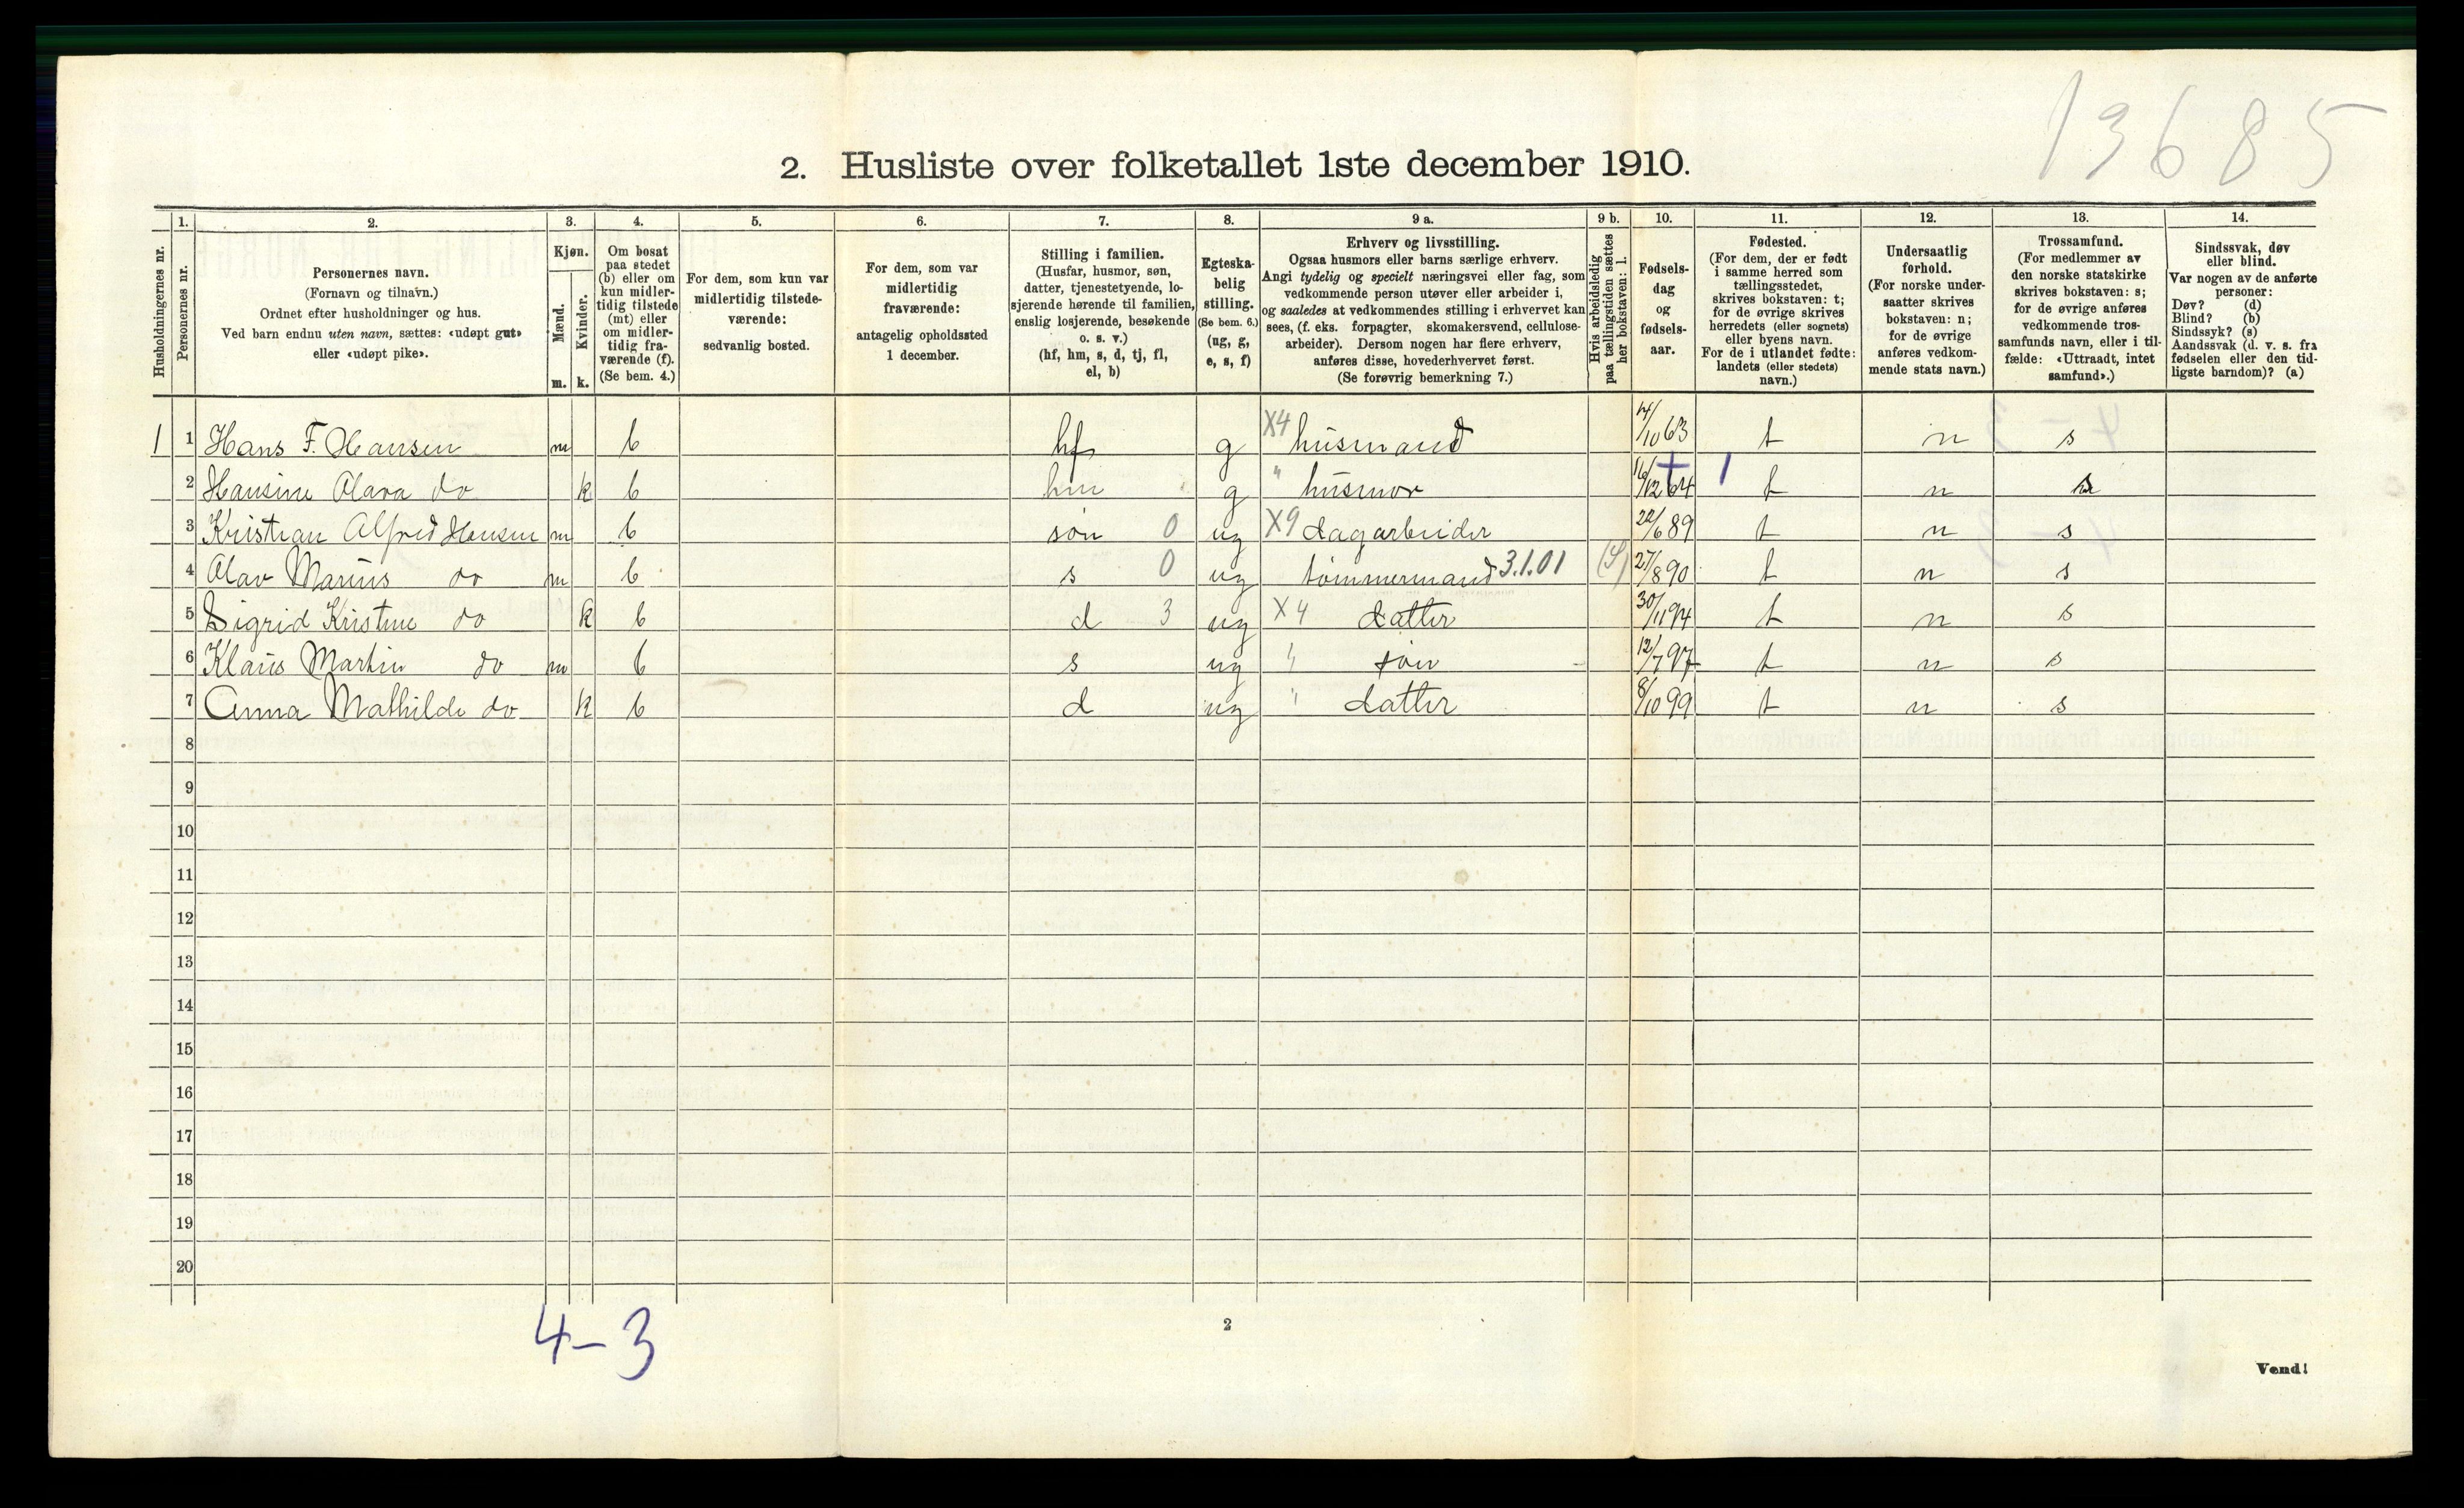 13685
2. Husliste over folketallet 1ste december 1910.
Husholdningernes nr.
1.
Personernes nr.
2.
Personernes navn.
(Fornavn og tilnavn.)
Ordnet efter husholdninger og hus.
Ved barn endnu uten navn, sættes: «udøpt gut»
eller «udøpt pike».
3.
Kjøn.
Mænd.
Kvinder.
m. k.
4.
Om bosat
paa stedet
(b) eller om
kun midler-
tidig tilstede
(mt) eller
om midler-
tidig fra-
værende (f).
(Se bem. 4.)
5.
For dem, som kun var
midlertidig tilstede-
værende:
sedvanlig bosted.
6.
For dem, som var
midlertidig
fraværende:
antagelig opholdssted
1 december.
7.
Stilling i familien.
(Husfar, husmor, søn,
datter, tjenestetyende, lo-
sjerende hørende til familien,
enslig losjerende, besøkende
o. s. v.)
(hf, hm, s, d, tj, fl,
el, b)
8.
Egteska-
belig
stilling.
(Se bem. 6.)
(ug, g,
e, s, f)
9 a.
Erhverv og livsstilling.
Ogsaa husmors eller barns særlige erhverv.
Angi tydelig og specielt næringsvei eller fag, som
vedkommende person utøver eller arbeider i,
og saaledes at vedkommendes stilling i erhvervet kan
sees, (f. eks. forpagter, skomakersvend, cellulose-
arbeider). Dersom nogen har flere erhverv,
anføres disse, hovederhvervet først.
(Se forøvrig bemerkning 7.)
9 b.
Hvis arbeidsledig
paa tællingstiden sættes
her bokstaven: l.
10.
Fødsels-
dag
og
fødsels-
aar.
11.
Fødested.
(For dem, der er født
i samme herred som
tællingsstedet,
skrives bokstaven: t;
for de øvrige skrives
herredets (eller sognets)
eller byens navn.
For de i utlandet fødte:
landets (eller stedets)
navn.)
12.
Undersaatlig
forhold.
(For norske under-
saatter skrives
bokstaven: n;
for de øvrige
anføres vedkom-
mende stats navn.)
13.
Trossamfund.
(For medlemmer av
den norske statskirke
skrives bokstaven: s;
for de øvrige anføres
vedkommende tros-
samfunds navn, eller i til-
fælde: «Uttraadt, intet
samfund».)
14.
Sindssvak, døv
eller blind.
Var nogen av de anførte
personer:
Døv? (d)
Blind? (b)
Sindssyk? (s)
Aandssvak (d. v. s. fra
fødselen eller den tid-
ligste barndom)? (a)
1 1 Hans F. Hansen m b hf g X4 husmand 14/10 63 t n s
2 Hansine Olava do k b hm g " husmor 16/12 64 t n s
3 Kristian Alfred Hansen m b søn 0 ug X9 dagarbeider 22/6 89 t n s
4 Olav Marius do m b s 0 ug tømmermand 3.1.01 27/8 90 t n s
5 Sigrid Kristine do k b d 3 ug X4 datter 30/11 94 t n s
6 Klaus Martin do m b s ug " søn 12/7 97 t n s
7 Anna Mathilde do k b d ug " datter 8/10 99 t n s
8
9
10
11
12
13
14
15
16
17
18
19
20
4-3
2
Vend!